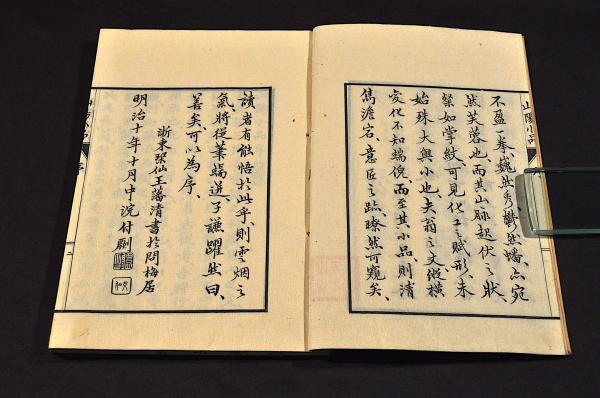 山陽小品
不盈一拳巍然秀鬱然蟠亦宛
然芙蓉也而其山脉起伏之狀
粲如掌紋可見化工之賦形未
始殊大與小也夫翁之文縱橫
變化不知端倪而至其小品則清
雋澹宕意匠之跡瞭然可窺矣、
讀者有能悟於此乎則雲烟之
氣、將從筆端迸、子謙躍然曰、
善矣可以為序、
明治十年十月中浣付劂
浙東張仙王藩清書於問梅居
二